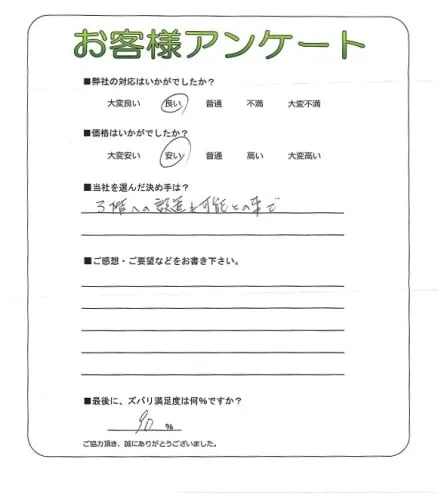 お客様アンケート
■弊社の対応はいかがでしたか?
大変良い 良い 普通 不満 大変不満
■価格はいかがでしたか?
大変安い 安い 普通 高い 大変高い
■当社を選んだ決め手は?
3階への設置も可能との事で
■ご感想・ご要望などをお書き下さい。
■最後に、ズバリ満足度は何%ですか?
90 %
ご協力頂き、誠にありがとうございました。